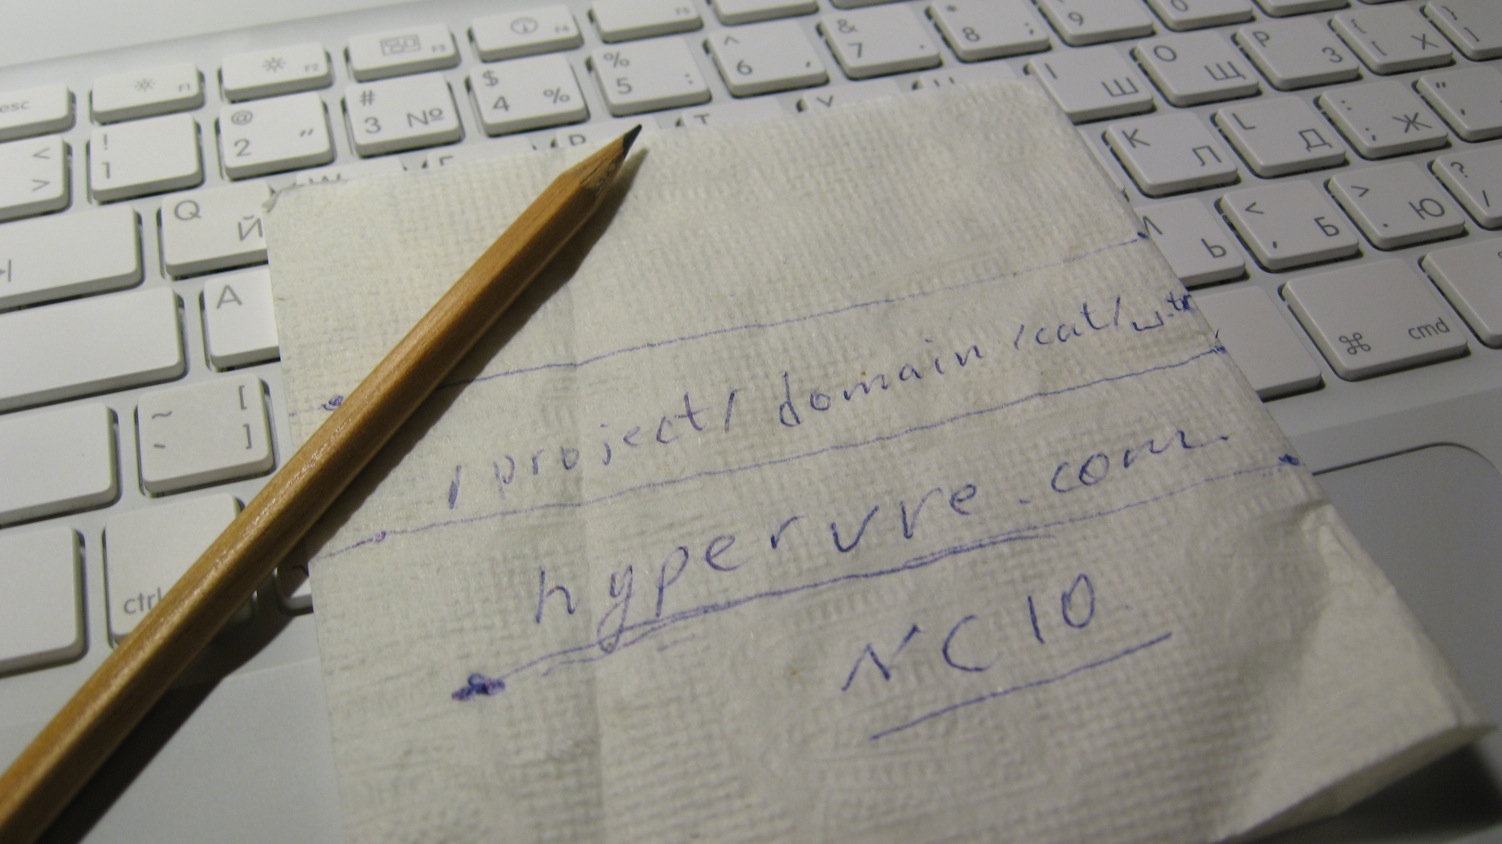 esc F1 F2 F3 F4 F5
< > ! 1 @ 2 " # 3 № $ 4 % % 5 : ^ 6 , & 7 . * 8 ; 9
Q Й I Ш O Щ P З { [ Х } ]
A K Л L Д : ; Ж " '
~ ` [ ] Ь < , Б > . Ю ? /
ctrl ⌘ cmd
/project/domain/cat/
hypervre.com
NC10